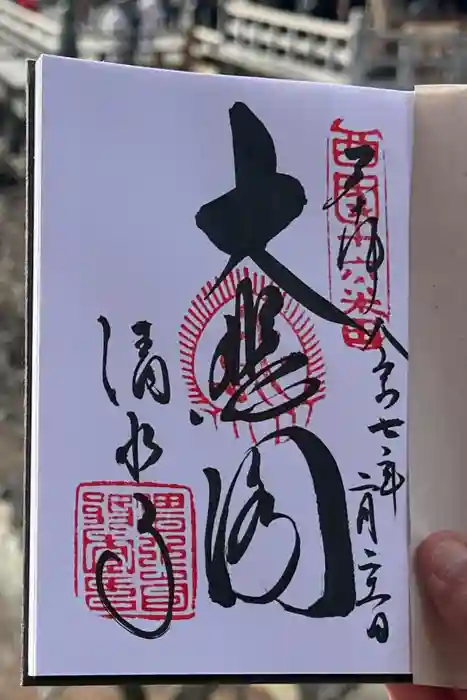 奉拝 令和七年二月二三日
西国十六番
大悲閣
清水寺